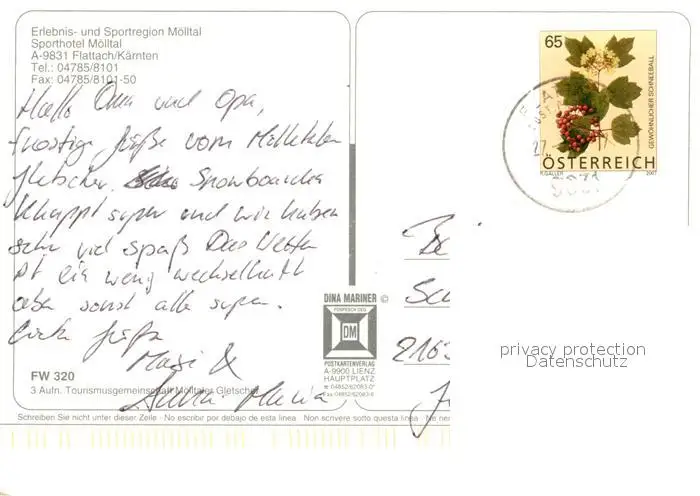 Erlebnis- und Sportregion Mölltal
Sporthotel Mölltal
A-9831 Flattach/Kärnten
Tel.: 04785/8101
Fax: 04785/8101-50
Hallo Oma und Opa,
frostige Grüße vom Mölltaler
gletscher. Snowboarden
klappt super und wir haben
sehr viel spaß Das Wetter
ist ein wenig wechselhaft
aber sonst alle super.
Liebe Grüße
&
Anna Maria
FW 320
3 Aufn. Tourismusgemeinschaft Mölltaler Gletscher
DINA MARINER ©
DM
POSTKARTENVERLAG
A-9900 LIENZ
HAUPTPLATZ
☎ 04852/62083-0*
Fax 04852/62083-6
65
GEWÖHNLICHER SCHNEEBALL
ÖSTERREICH
2007
27.
2163
privacy protection
Datenschutz
Schreiben Sie nicht unter dieser Zeile · No escribir por debajo de esta linea · Non scrivere sotto questa linea · Ne